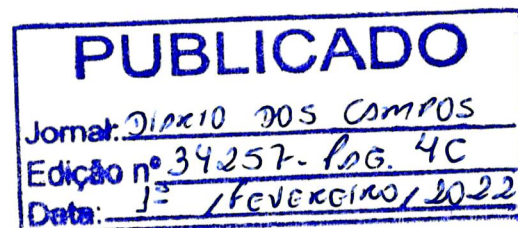 PUBLICADO
Jornal: DIÁRIO DOS CAMPOS
Edição nº 34257- PÁG. 4C
Data: 1º / FEVEREIRO / 2022